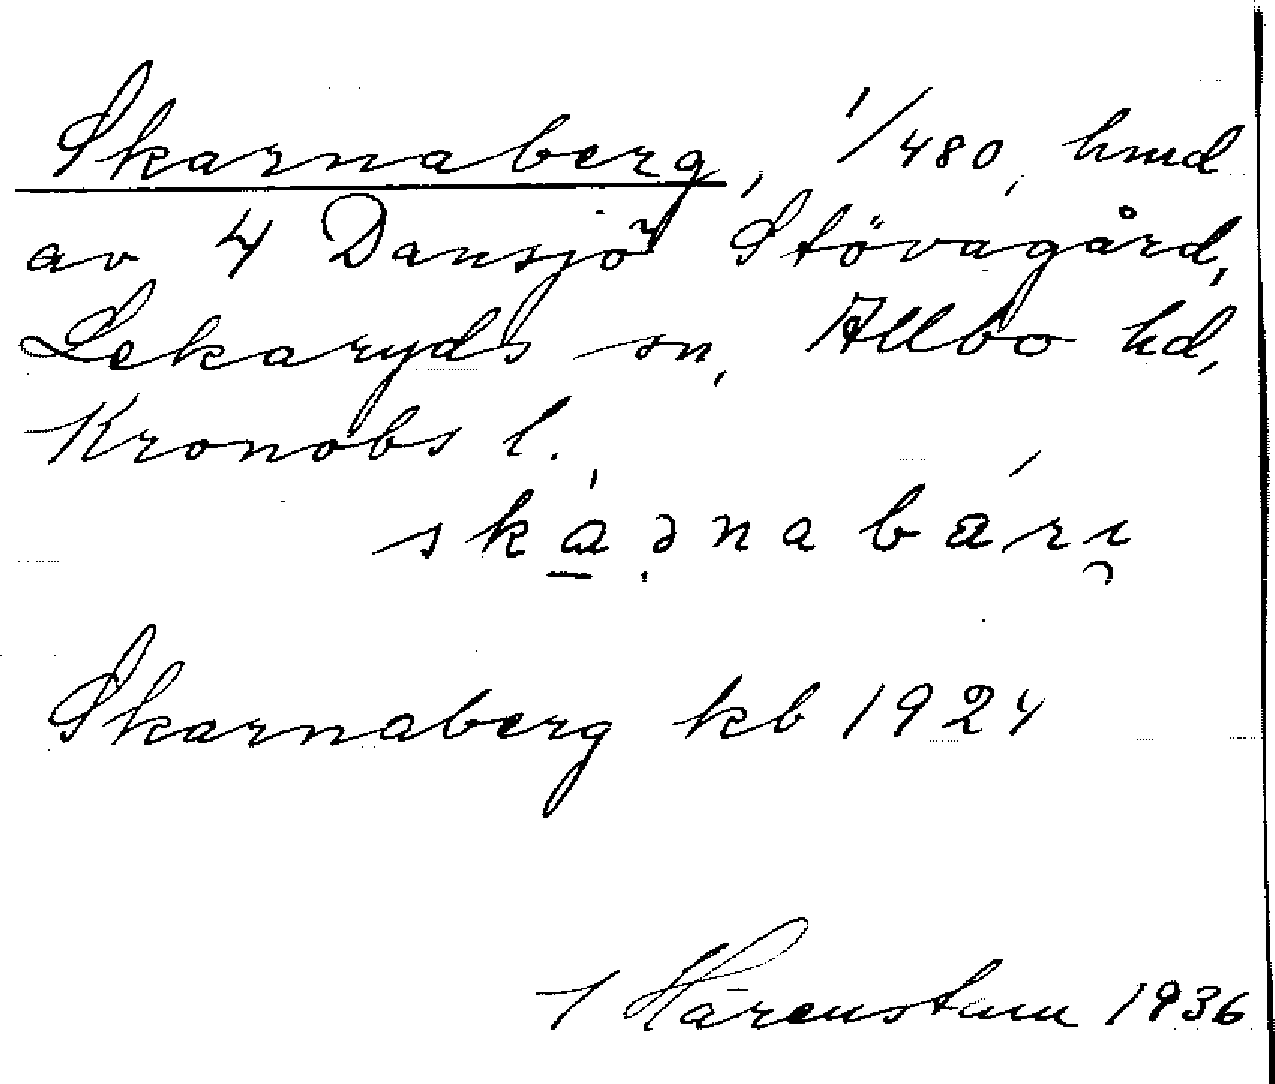 Skarnaberg, 1/480, hmd
av 4 Dansjö Stövagård,
Lekaryds sn, Allbo hd,
Kronobs l.
Skarnaberg kb 1924
Härenstam 1936